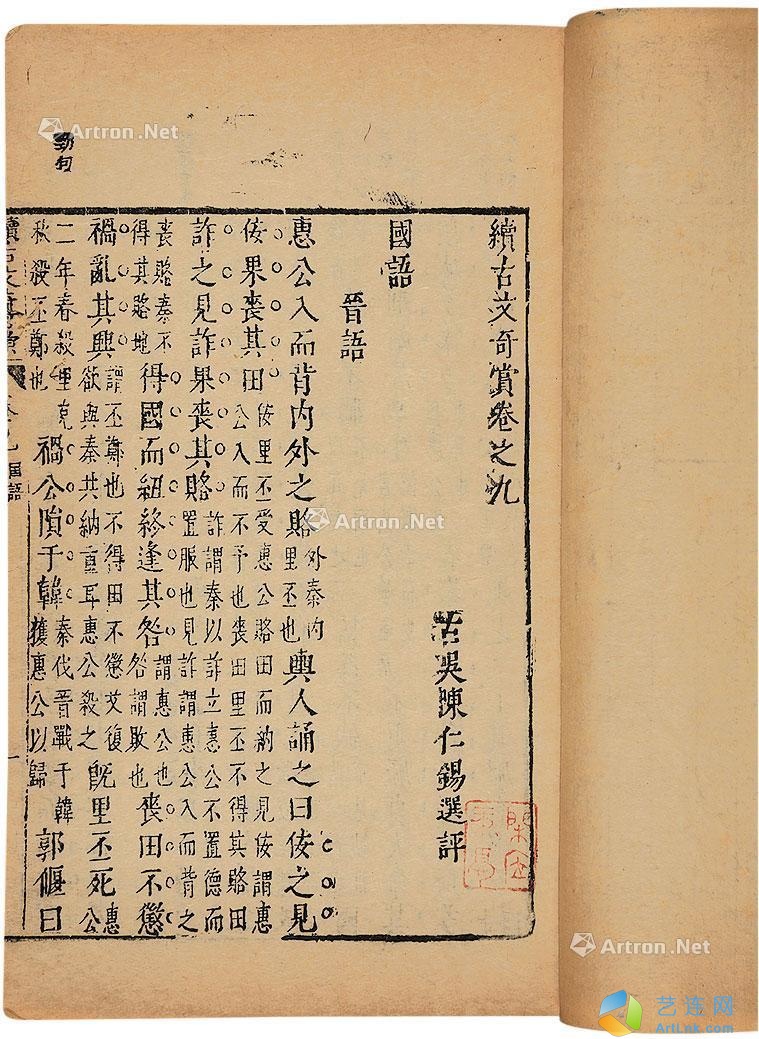 續古文奇賞卷之九
古吳陳仁錫選評
國語
晉語
惠公入而背內外之賂外秦內里丕也輿人誦之曰佞之見
佞果喪其田佞里丕受惠公賂田而納之見佞謂惠公入而不予也喪田里丕不得其賂田
詐之見詐果喪其賂詐謂秦以詐立惠公不置德而置服也見詐謂惠公入而背之
喪賂秦不得其賂地得國而紐終逢其咎謂惠公也咎謂敗也喪田不懲
禍亂其興謂丕鄭也不得田不懲艾復欲與秦共納重耳惠公殺之既里丕死惠公
二年春殺里克秋殺丕鄭也禍公隕于韓秦伐晉戰于韓獲惠公以歸郭偃曰
勁句
國語
一
Artron.Net
Artron.Net
Artron.Net
Artron.Net
艺连网
ArtLnk.com